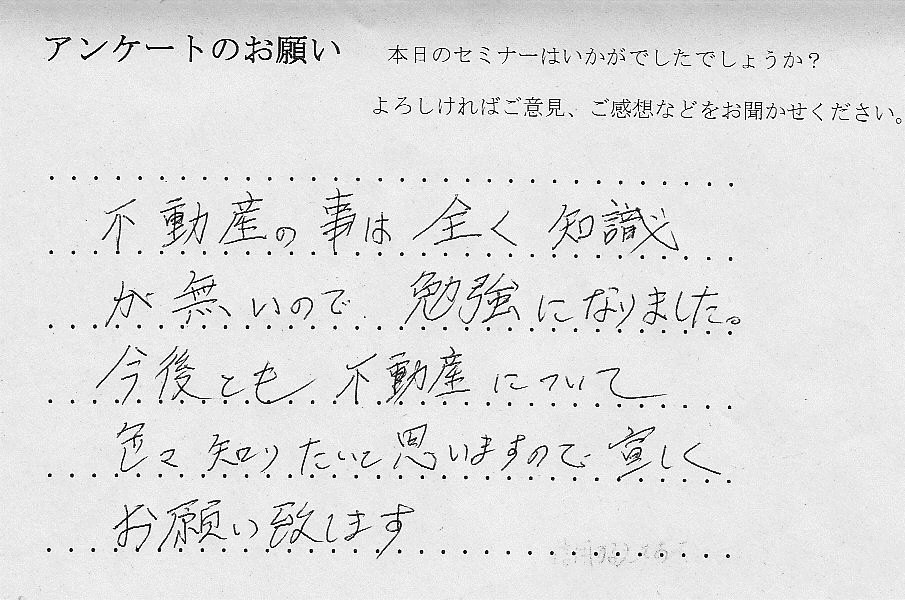 アンケートのお願い 本日のセミナーはいかがでしたでしょうか?
よろしければご意見、ご感想などをお聞かせください。
不動産の事は全く知識
が無いので勉強になりました。
今後とも不動産について
色々知りたいと思いますので宜しく
お願い致します